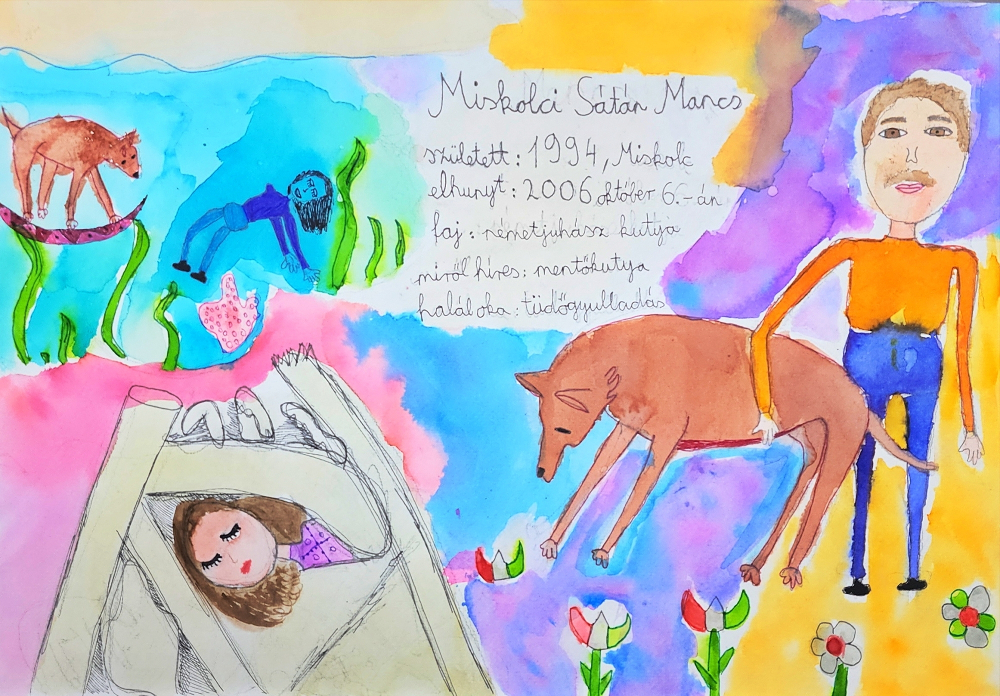 Miskolci Sátán Mancs
született: 1994, Miskolc
elhunyt: 2006 október 6.-án
faj: németjuhász kutya
miről híres: mentőkutya
halál oka: tüdőgyulladás